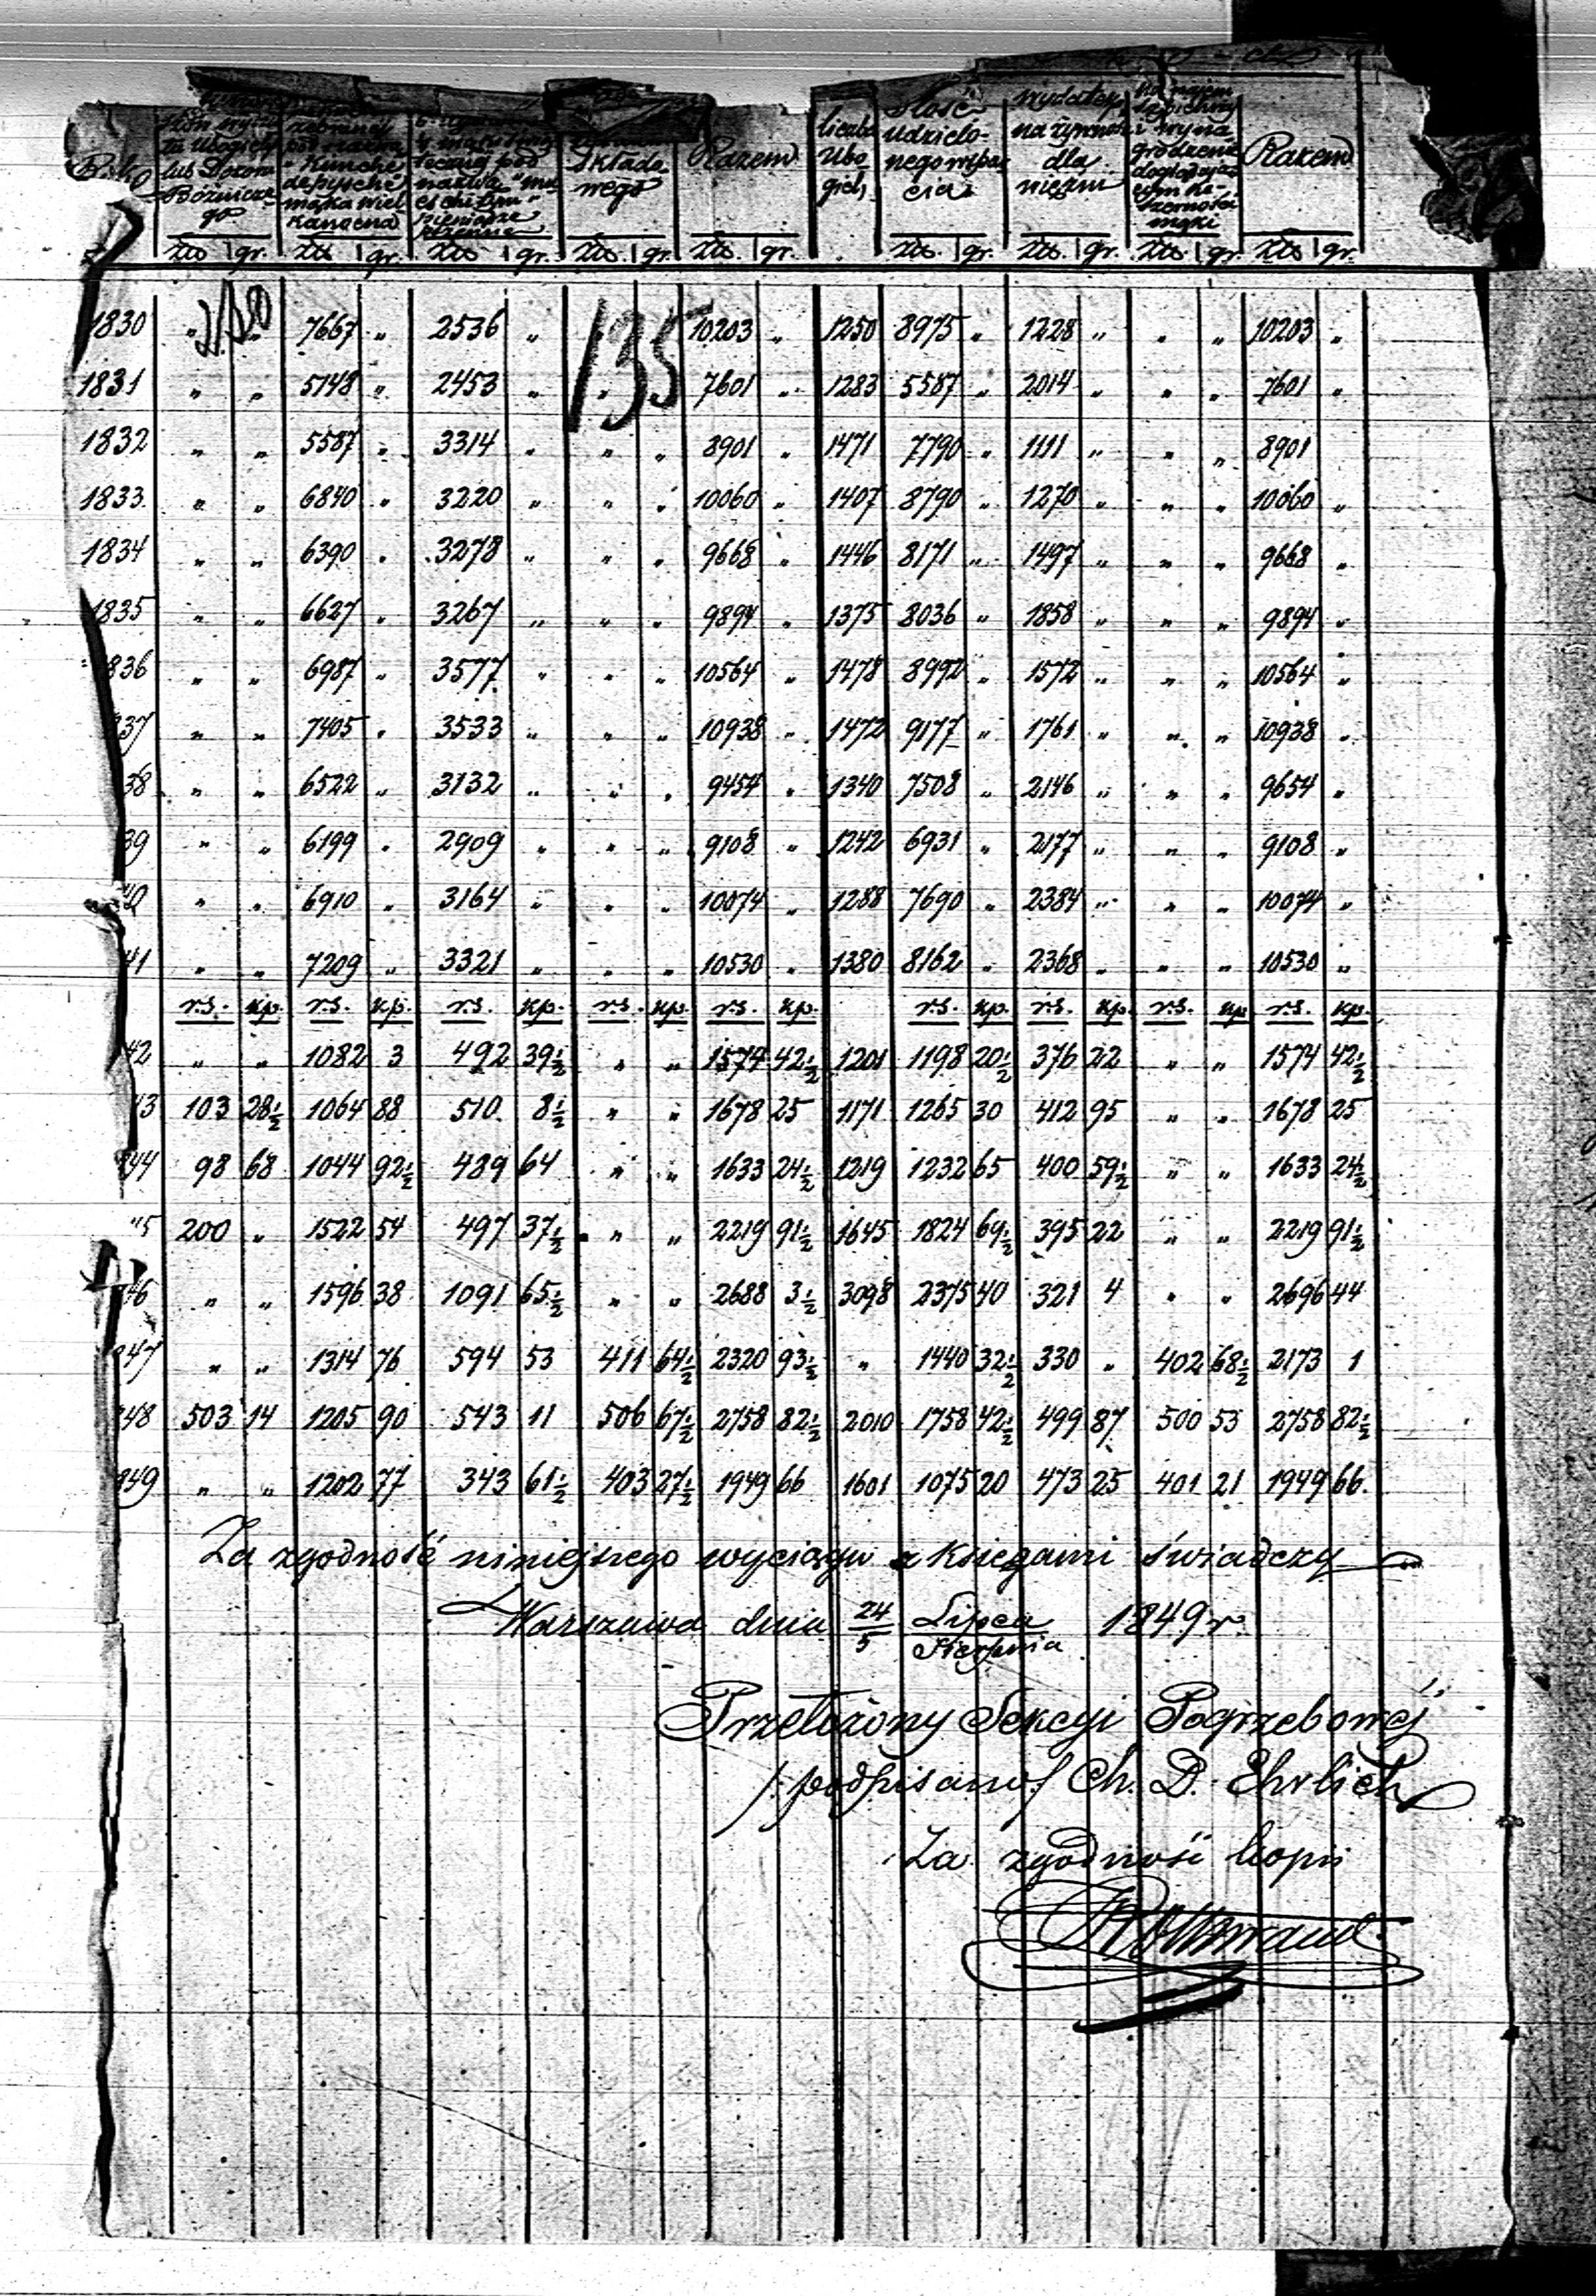 Razem | liczba Ubogich | Ilość udzielonego wsparcia | wydatek na żywność dla więźni | Razem
składowego
lub Dozoru Bóżniczego
zł | gr. | zł | gr. | zł | gr. | zł. | gr. | zł. | gr. | | zł. | gr. | zł. | gr. | zł. | gr. | zł | gr.
135
1830 | „ | „ | 7667 | „ | 2536 | „ | | | 10203 | „ | 1250 | 8975 | „ | 1228 | „ | „ | „ | 10203 | „
1831 | „ | „ | 5148 | „ | 2453 | „ | „ | | 7601 | „ | 1283 | 5587 | „ | 2014 | „ | „ | „ | 7601 | „
1832 | „ | „ | 5587 | „ | 3314 | „ | „ | „ | 8901 | „ | 1471 | 7790 | „ | 1111 | „ | „ | „ | 8901
1833 | „ | „ | 6840 | „ | 3220 | „ | „ | „ | 10060 | „ | 1407 | 8790 | „ | 1270 | „ | „ | „ | 10060 | „
1834 | „ | „ | 6390 | „ | 3278 | „ | „ | „ | 9668 | „ | 1446 | 8171 | „ | 1497 | „ | „ | „ | 9668 | „
1835 | „ | „ | 6627 | „ | 3267 | „ | „ | „ | 9894 | „ | 1375 | 8036 | „ | 1858 | „ | „ | „ | 9894 | „
836 | „ | „ | 6987 | „ | 3577 | „ | „ | „ | 10564 | „ | 1478 | 8992 | „ | 1572 | „ | „ | „ | 10564 | „
37 | „ | „ | 7405 | „ | 3533 | „ | „ | „ | 10938 | „ | 1472 | 9177 | „ | 1761 | „ | „ | „ | 10938 | „
38 | „ | „ | 6522 | „ | 3132 | „ | „ | „ | 9454 | „ | 1340 | 7508 | „ | 2146 | „ | „ | „ | 9654 | „
39 | „ | „ | 6199 | „ | 2909 | „ | „ | „ | 9108 | „ | 1242 | 6931 | „ | 2177 | „ | „ | „ | 9108 | „
40 | „ | „ | 6910 | „ | 3164 | „ | „ | „ | 10074 | „ | 1288 | 7690 | „ | 2384 | „ | „ | „ | 10074 | „
41 | „ | „ | 7209 | „ | 3321 | „ | „ | „ | 10530 | „ | 1380 | 8162 | „ | 2368 | „ | „ | „ | 10530 | „
r.s. | kp. | r.s. | kp. | r.s. | kp. | r.s. | kp. | r.s. | kp. | | r.s. | kp. | r.s. | kp. | r.s. | kp | r.s. | kp.
42 | „ | „ | 1082 | 3 | 492 | 39½ | „ | „ | 1574 | 42½ | 1201 | 1198 | 20½ | 376 | 22 | „ | „ | 1574 | 42½
43 | 103 | 28½ | 1064 | 88 | 510 | 8½ | „ | „ | 1678 | 25 | 1171 | 1265 | 30 | 412 | 95 | „ | „ | 1678 | 25
44 | 98 | 68 | 1044 | 92½ | 489 | 64 | „ | „ | 1633 | 24½ | 1219 | 1232 | 65 | 400 | 59½ | „ | „ | 1633 | 24½
45 | 200 | „ | 1522 | 54 | 497 | 37½ | „ | „ | 2219 | 91½ | 1645 | 1824 | 69½ | 395 | 22 | „ | „ | 2219 | 91½
46 | „ | „ | 1596 | 38 | 1091 | 65½ | „ | „ | 2688 | 3½ | 3098 | 2375 | 40 | 321 | 4 | „ | „ | 2696 | 44
847 | „ | „ | 1314 | 76 | 594 | 53 | 411 | 64½ | 2320 | 93½ | „ | 1440 | 32½ | 330 | „ | 402 | 68½ | 2173 | 1
848 | 503 | 14 | 1205 | 90 | 543 | 11 | 506 | 67½ | 2758 | 82½ | 2010 | 1758 | 42½ | 499 | 87 | 500 | 53 | 2758 | 82½
849 | „ | „ | 1202 | 77 | 343 | 61½ | 403 | 27½ | 1949 | 66 | 1601 | 1075 | 20 | 473 | 25 | 401 | 21 | 1949 | 66.
Za zgodność niniejszego wyciągu z księgami świadczy
Warszawa dnia 24/5 Lipca/Sierpnia 1849 r.
Przełożony Sekcyi Pogrzebowéj
/podpisano/ Ch. D. Ehrlich
Za zgodność kopii